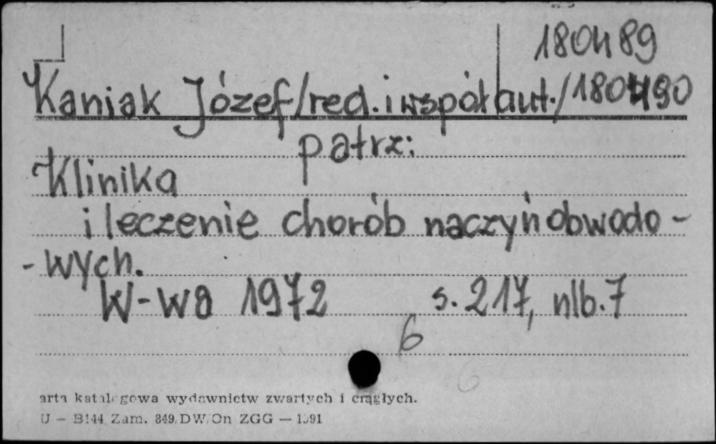 180489
Kaniak Józef/red. i współaut./180490
patrz:
Klinika
i leczenie chorób naczyń obwodo-
-wych.
W-wa 1972 s. 217, nlb. 7
6
6
arta katalogowa wydawnictw zwartych i ciągłych.
U - B144 Zam. 849 DW.On ZGG — 1591